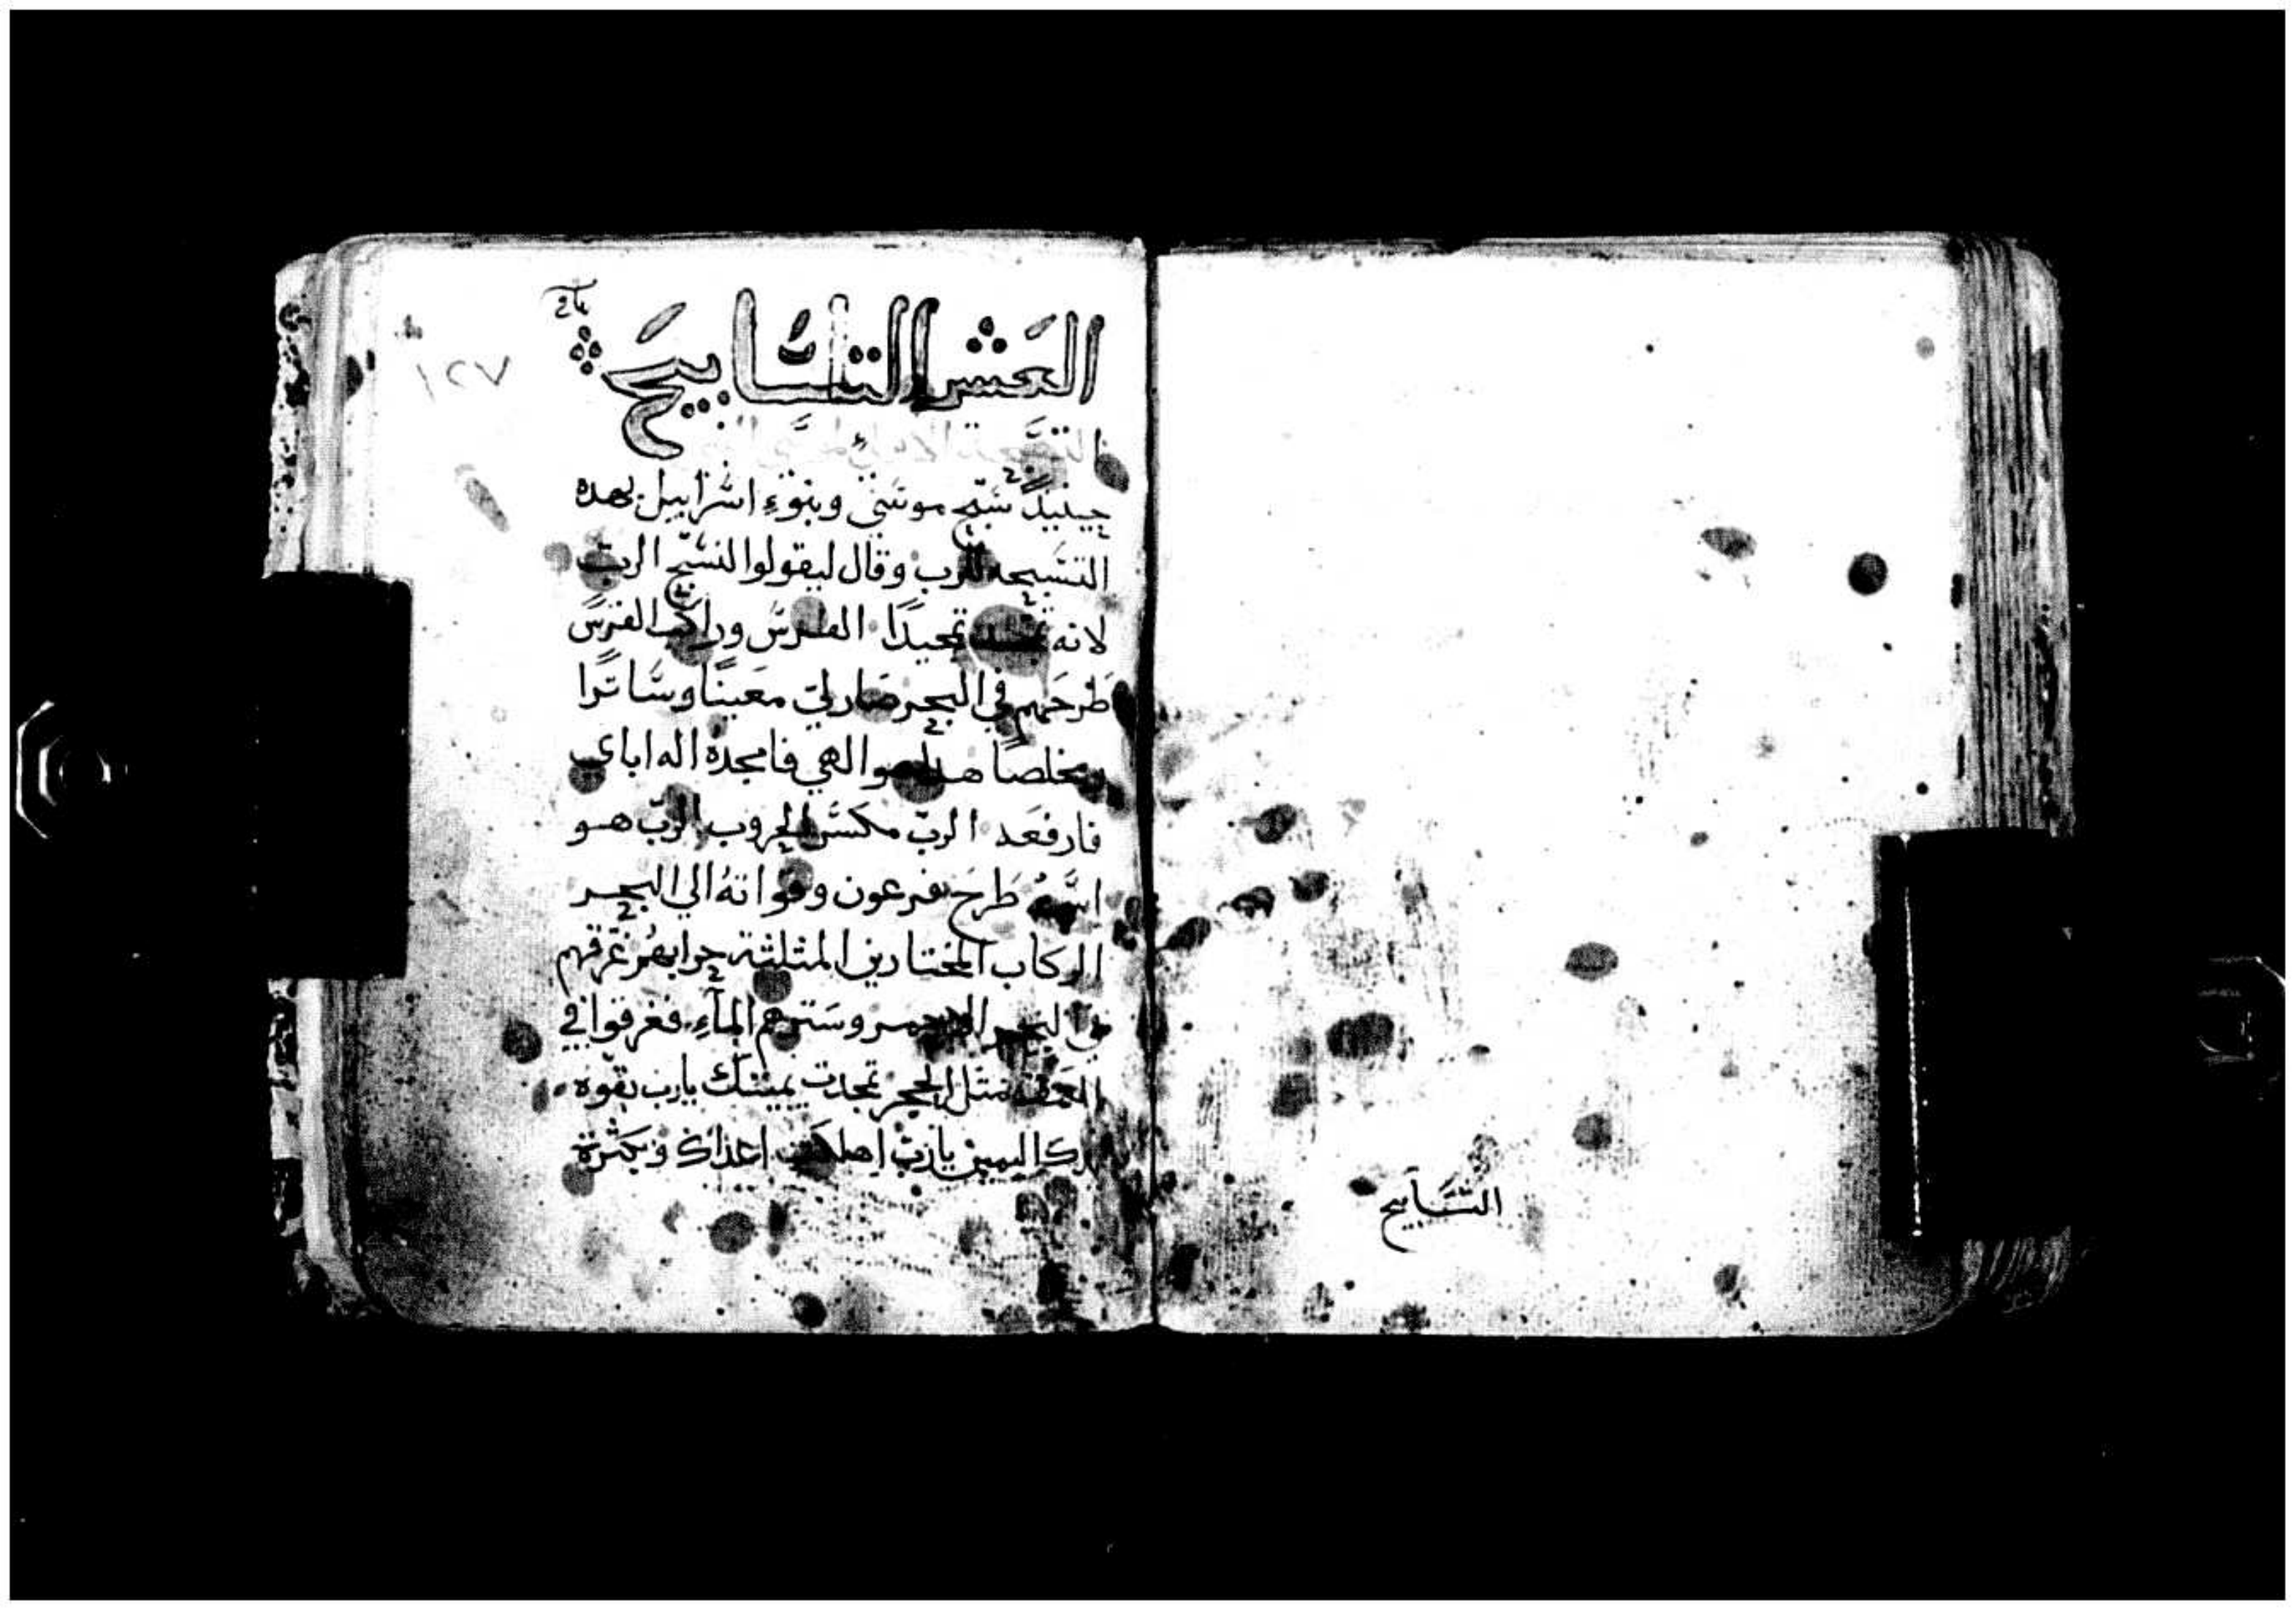 التسابيح
١٢٧
العشر التسابيح
التسبحة الاولى
حينيدً سَبّح موسَي وبنوءِ اسرَاييل بهده
التسَبحه للرب وقال ليقولوا لنسَبّح الربّ
لانه تمجيدًا الفرسَ وراكب الفرسَ
طَرحَهم في البحر صَار لي مَعينًا وسَاترًا
ومخلصًا هدا هو الهي فامجدهُ اله اباي
فارفعَه الربّ مكسَر الحروب الربّ هو
اسَمهُ طَرحَ فرعون وقواتهُ الي البحر
الركاب المختارين المثلثة حرابهُم غرقهم
في البحر الاحمر وسَترهم المآءِ فغرقوا في
العمق متل الحجر تمجدت يمينك يارب بقوة
يدك اليمين يارب اهلكت اعداك وبكثرة